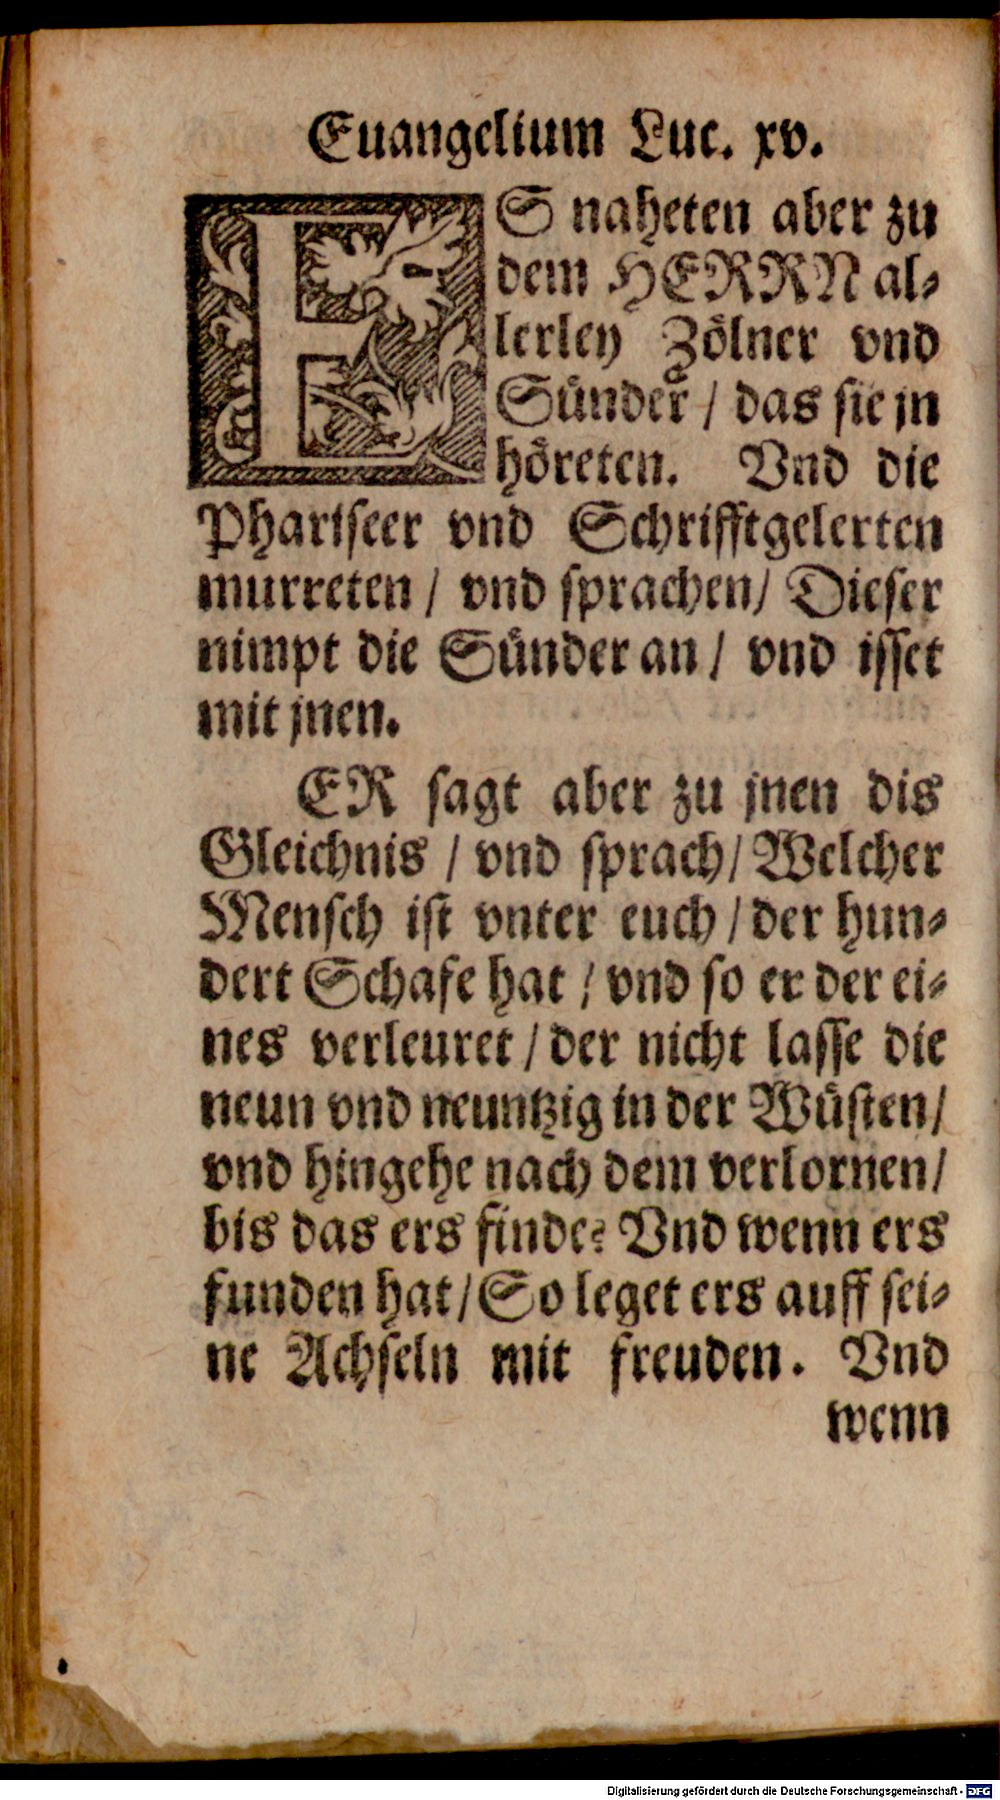 Euangelium Luc. xv.
ES naheten aber zu
dem HERRN al⸗
lerley Zoͤlner vnd
Suͤnder / das sie jn
hoͤreten. Vnd die
Phariseer vnd Schrifftgelerten
murreten / vnd sprachen / Dieser
nimpt die Suͤnder an / vnd isset
mit jnen.
ER sagt aber zu jnen dis
Gleichnis / vnd sprach / Welcher
Mensch ist vnter euch / der hun⸗
dert Schafe hat / vnd so er der ei⸗
nes verleuret / der nicht lasse die
neun vnd neuntzig in der Wuͤsten /
vnd hingehe nach dem verlornen /
bis das ers finde? Vnd wenn ers
funden hat / So leget ers auff sei⸗
ne Achseln mit freuden. Vnd
wenn
Digitalisierung gefördert durch die Deutsche Forschungsgemeinschaft - DFG